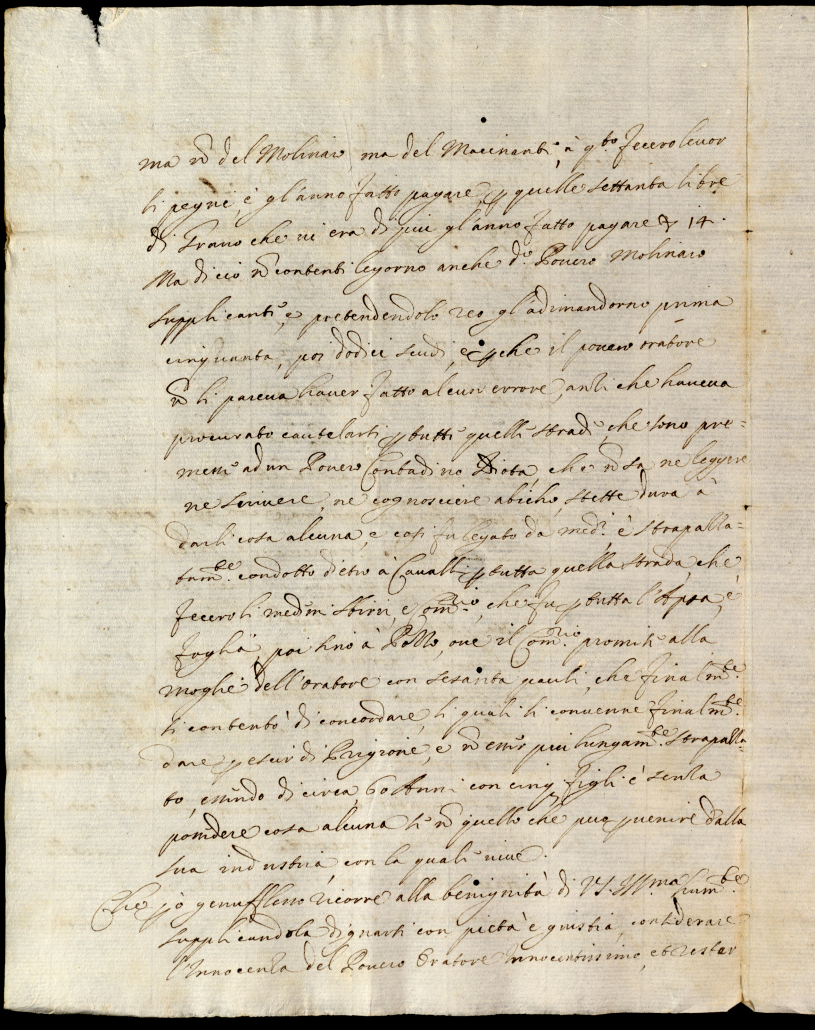 ma nō del Molinaro, ma del Macinante, à q.to fecero levar
li pegni, e gl'anno fatto pagare, p quelle settanta libre
di Grano che vi era di più gl'anno fatto pagare 14.
Ma di ciò nō contenti legorno anche d.o Povero Molinaro
supplicante, e pretendendolo reo gl'adimandorno prima
cinquanta, poi dodici scudi, e pche il povero oratore
nō li pareva haver fatto alcun errore, anzi che haveva
procurato cautelarsi p tutte quelle strade, che sono pre=
messe ad un Povero Contadino Idiota, che nō sa ne leggere
ne scrivere, ne cognoscere abicho, stette duro à
darli cosa alcuna, e così fu legato da med.i e strapalla=
tam.te condotto dietro à Cavalli p tutta quella strada, che
fecero li medmi sbirri, e Com.rio, che fu p tutta l'Apsa, e
foglia, poi sino à Pollo, ove il Com.rio promise alla
moglie dell'oratore con sesanta pauli, che final.te
si contentò di concordare, li quali li convenne final.te
dare p escir di Prigione, e nō esser più lungam.te strapalla=
to, essendo di circa 60 Anni con cinq figli e senza
possidere cosa alcuna se nō quello che può pvenire dalla
sua industria con la quale vive.
Che p ò genuflesso ricorre alla benignità di V.S. Ill.ma
supplicandola dignarsi con pietà e giustia, considerare
l'Innocenza del Povero Oratore Innocentissimo, et restar